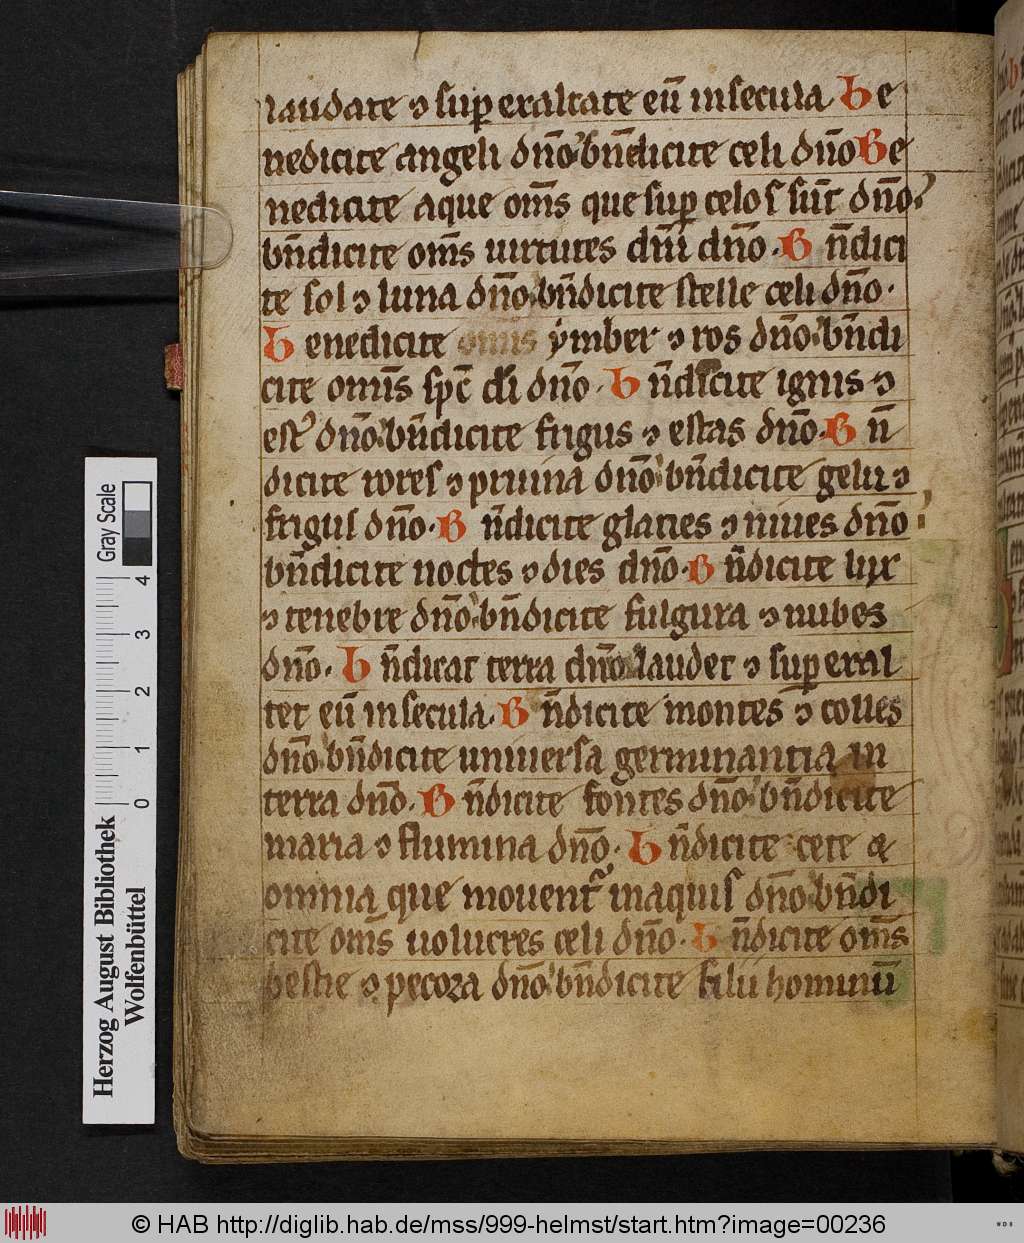 laudate ⁊ sup exaltate eū insecula Be
nedicite angeli dño bñdicite celi dño Be
nedicite aque om̄s que sup celos sūt dño
bñdicite om̄s uirtutes dñi dño · B ñdici
te sol ⁊ luna dño bñdicite stelle celi dño ·
B enedicite omīs ymber ⁊ ros dño bñdi
cite omīs spc̄ di dño · B ñdicite ignis ⁊
est' dño bñdicite frigus ⁊ estas dño · B ñ
dicite rores ⁊ pruina dño bñdicite gelu ⁊
frigus dño · B ñdicite glacies ⁊ niues dño
bñdicite noctes ⁊ dies dño · B ñdicite lux
⁊ tenebre dño bñdicite fulgura ⁊ nubes
dño · B ñdicat terra dño laudet ⁊ sup exal
tet eū insecula · B ñdicite montes ⁊ colles
dño bñdicite uniuersa germinantia in
terra dño · B ñdicite fontes dño bñdicite
maria ⁊ flumina dño · B ñdicite cete &
omnia que mouent' inaquis dño bñdi
cite om̄s uolucres celi dño · B ñdicite om̄s
bestie ⁊ pecora dño bñdicite filii hominū
Gray Scale
0 1 2 3 4
Herzog August Bibliothek
Wolfenbüttel
© HAB http://diglib.hab.de/mss/999-helmst/start.htm?image=00236